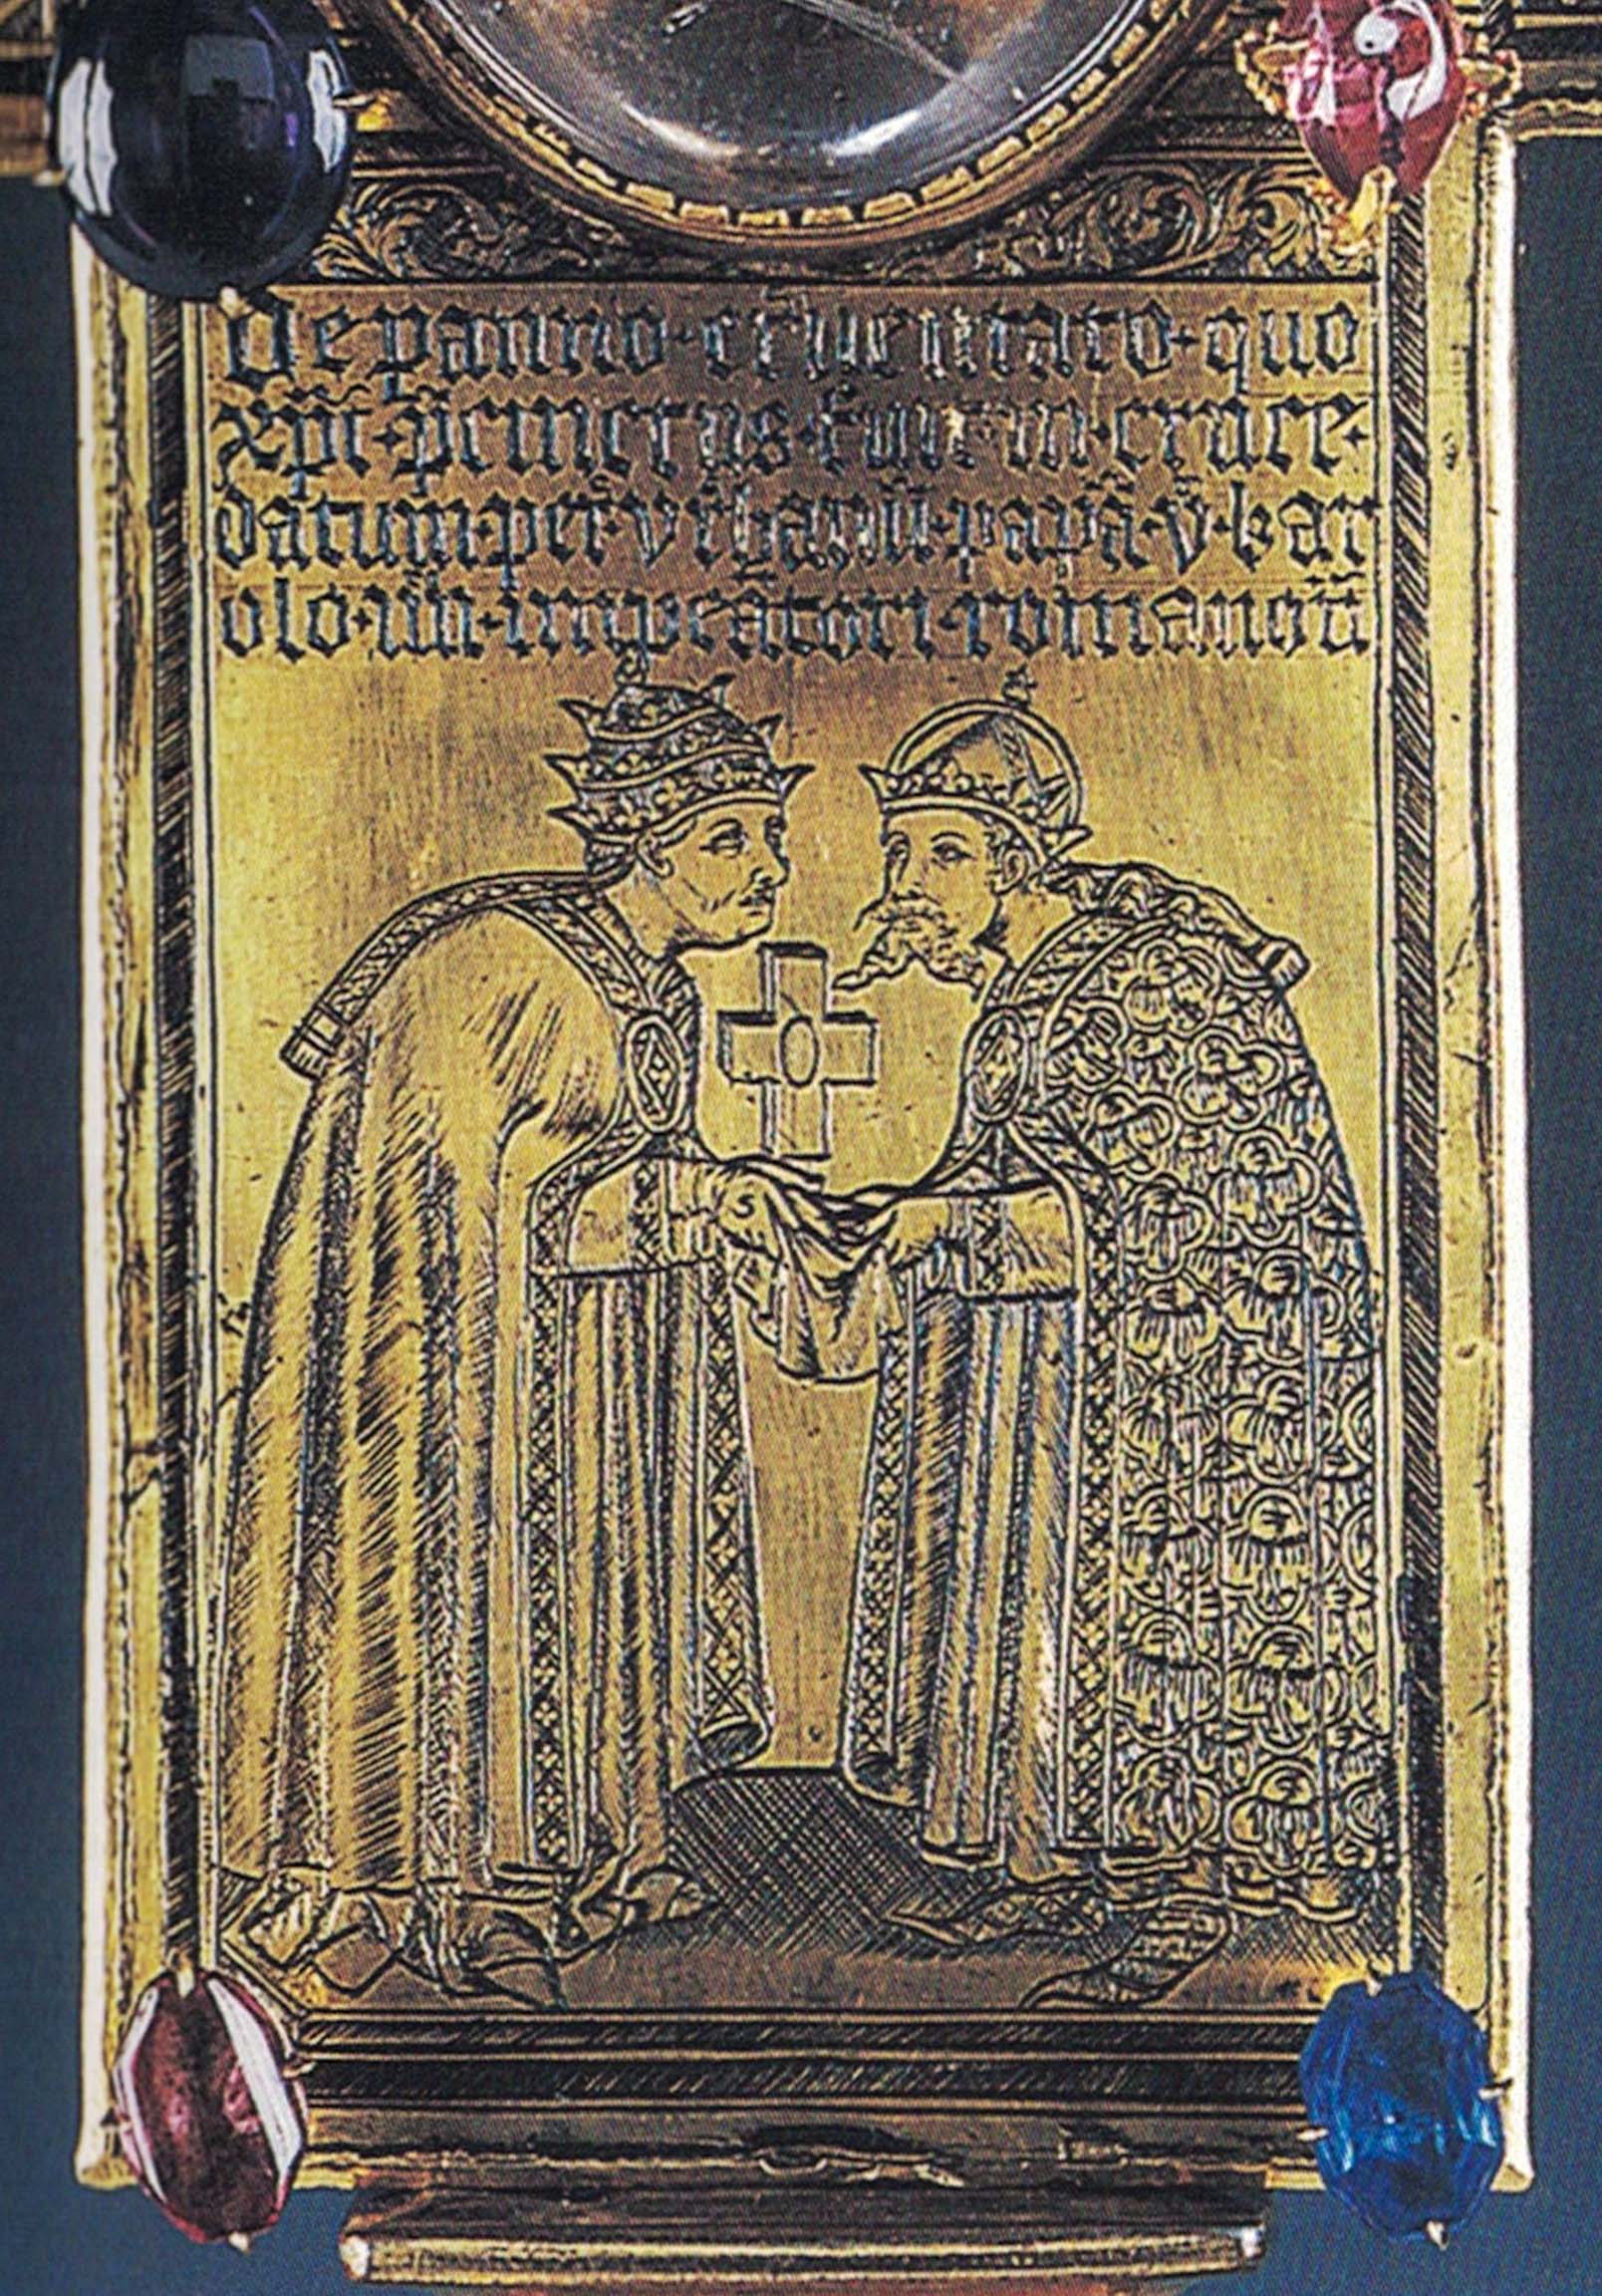 De panno · cruentato · quo
xp̄c · p̄cinctus · fuit · in · cruce ·
datum · per · vrbanū · papā · v̄ · kar
olo · iiii · imperatori · romanorū